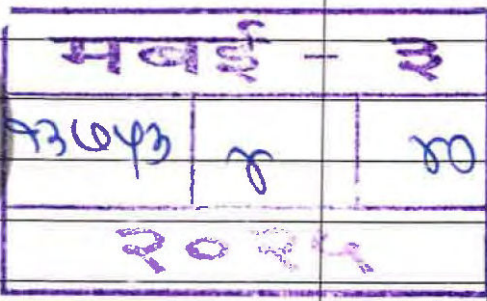 मबई - ३
१३७५३ | ४ | ४०
२०२५